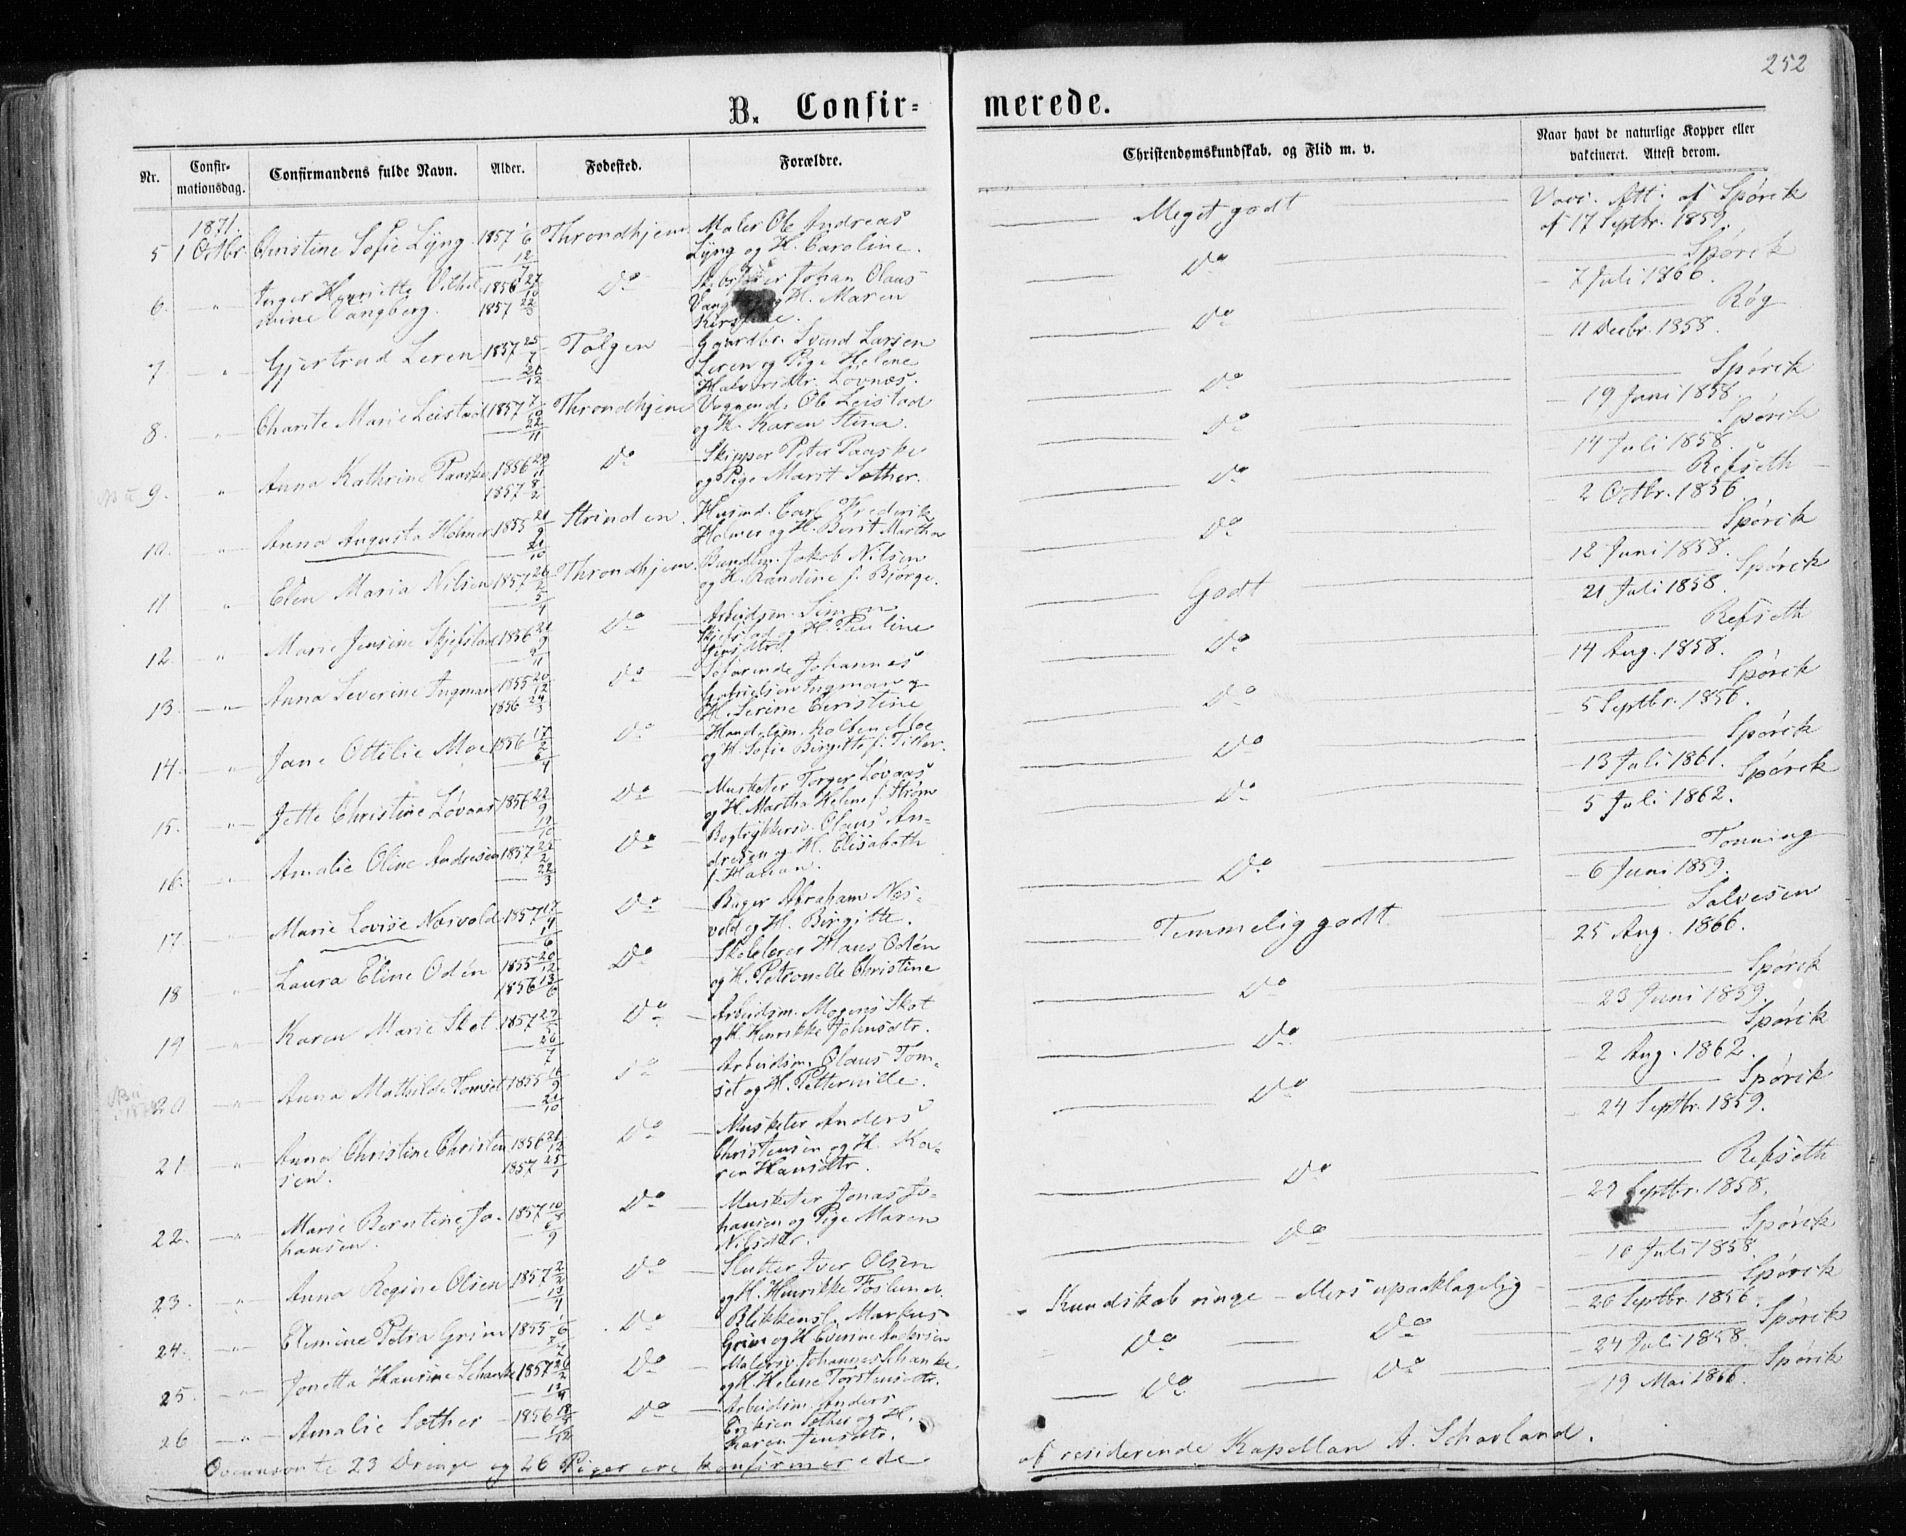 252
B. Confir-
merede.
Nr.
Confir-
mationsdag.
Confirmandens fulde Navn.
Alder.
Fødested.
Forældre.
Christendomskundskab. og Flid m. v.
Naar havt de naturlige Kopper eller
vakcineret. Attest derom.
1871.
5 1 Octbr. Christine Sofie Lÿng 1857 Throndhjem Maler Ole Andreas
Lÿng og H. Caroline.
Meget godt
Vavi. Att: af Spørck
af 17 Septbr. 1859.
6. " Inger Henriette Vilhel- 1856 27/10 Do Johan Olaus
mine Vangberg. 1857 H. Maren
Do
Spørck
- 7 Juli 1866.
7 " Gjertrud Leren 1857 25/7 Tolgen Gaardbr. Svend Larsen
Leren og Pige Helene
Halvorsdtr. Lovnæs.
Do
Røg
- 11 Decbr. 1858.
8. " Charite Marie Leistad 1857 Throndhjem Vognmd. Ole Leistad
og H. Karen Stina.
Do
Spørck
- 19 Juni 1858.
9. " Anna Kathrine Paaske 1856 29/11 Do Skipper Peter Paaske
1857 8/2 og Pige Marit Sæther.
Do
Spørck
- 14 Juli 1858.
10. " Anna Augusta Holmer 1855 21/9 Strinden Husmd. Carl Frederik
Holmer og H. Berit Martha
Do
Refseth
- 2 Octbr. 1856.
11 " Elen Maria Nilsen 1857 Throndhjem. Jakob Nilsen
og H. Randine f. Bjørge.
Do
Spørck
- 12 Juni 1858.
12. " Marie Jensine Skjefstad 1856 21/9 Do Arbeidsm. Simen
Skjefstad og H. Pauline
Jensdtr.
Godt
Spørck
21 Juli 1858.
13. " Anna Severine Ingman 1855 20/12 Do Søfarende Johannes
1856 24/3 Gabrielsen Ingman og
H. Serine Christine
Do
Refseth
- 14 Aug. 1858.
14. " Jane Ottilie Moe 1856 17/2 Do Handelsm. Kolben Moe
og H. Sofie Birgitte f. Tiller.
Do
Spørck
- 5 Septbr. 1856.
15. " Jette Christine Løvaas 1856 22/9 Do Musketer Torger Løvaas
og H. Martha Helene f. Strøm
Do
Spørck
- 13 Juli 1861.
16. " Amalie Oline Andresen 1857 Do Bogtrykkersv. Olaus An-
dresen og H. Elisabeth
Do
Spørck
- 5 Juli 1862.
17 " Marie Lovise Næsvold 1857 Do Bager Abraham Næs-
vold og H. Birgitte.
Do
Tonning
- 6 Juni 1859.
18 " Laura Eline Odén 1855 20/12 Do Skolelærer Hans Odén
1856 13/6 og H. Petronelle Christine
Temmelig godt
Salvesen
- 25 Aug. 1866.
19 " Karen Marie Skot 1857 Do Arbeidsm. Mogens Skot
og H. Henrikke Johnsdtr.
Do
Spørck
- 23 Juni 1859.
20 " Anna Mathilde Tomset 1855 16/9 Do Arbeidsm. Olaus Tom-
set og H. Petternille.
Do
Spørck
- 2 Aug. 1862.
21 " Anna Christine Christen- 1856 21/12 Do Musketer Anders
sen. 1857 25/1 Christensen og H. Ka-
ren Hansdtr.
Do
Spørck
- 24 Septbr. 1859.
22. " Marie Berntine Jo- 1857 10/8 Do Musketer Jonas Jo-
hansen. hansen og Pige Maren
Nilsdtr.
Do
Refseth
- 29 Septbr. 1858.
23. " Anna Regine Olsen 1857 2/2 Do Slutter Iver Olsen
og H. Henrikke Foslund.
Do
Spørck
- 10 Juli 1858.
24. " Elemine Petra Grim 1855 Do Blikkensl. Markus
Grim og H. Andersen
- Kundskab ringe - Mers upaaklagelig -
Spørck
- 26 Septbr. 1856.
25. " Jonetta Hansine Schanke 1857 Do Malersv. Johannes Schanke
og H. Helene Torstensdtr.
Do Do
Spørck
- 24 Juli 1858.
26 " Amalie Sæther 1856 Do Arbeidsm. Anders
Eriksen Sæther og H.
Karen Jensdtr.
Do Do
Spørck
- 19 Mai 1866.
Ovennævnte 23 Drenge og 26 Piger ere konfirmerede
af residerende Kapellan A. Schavland.